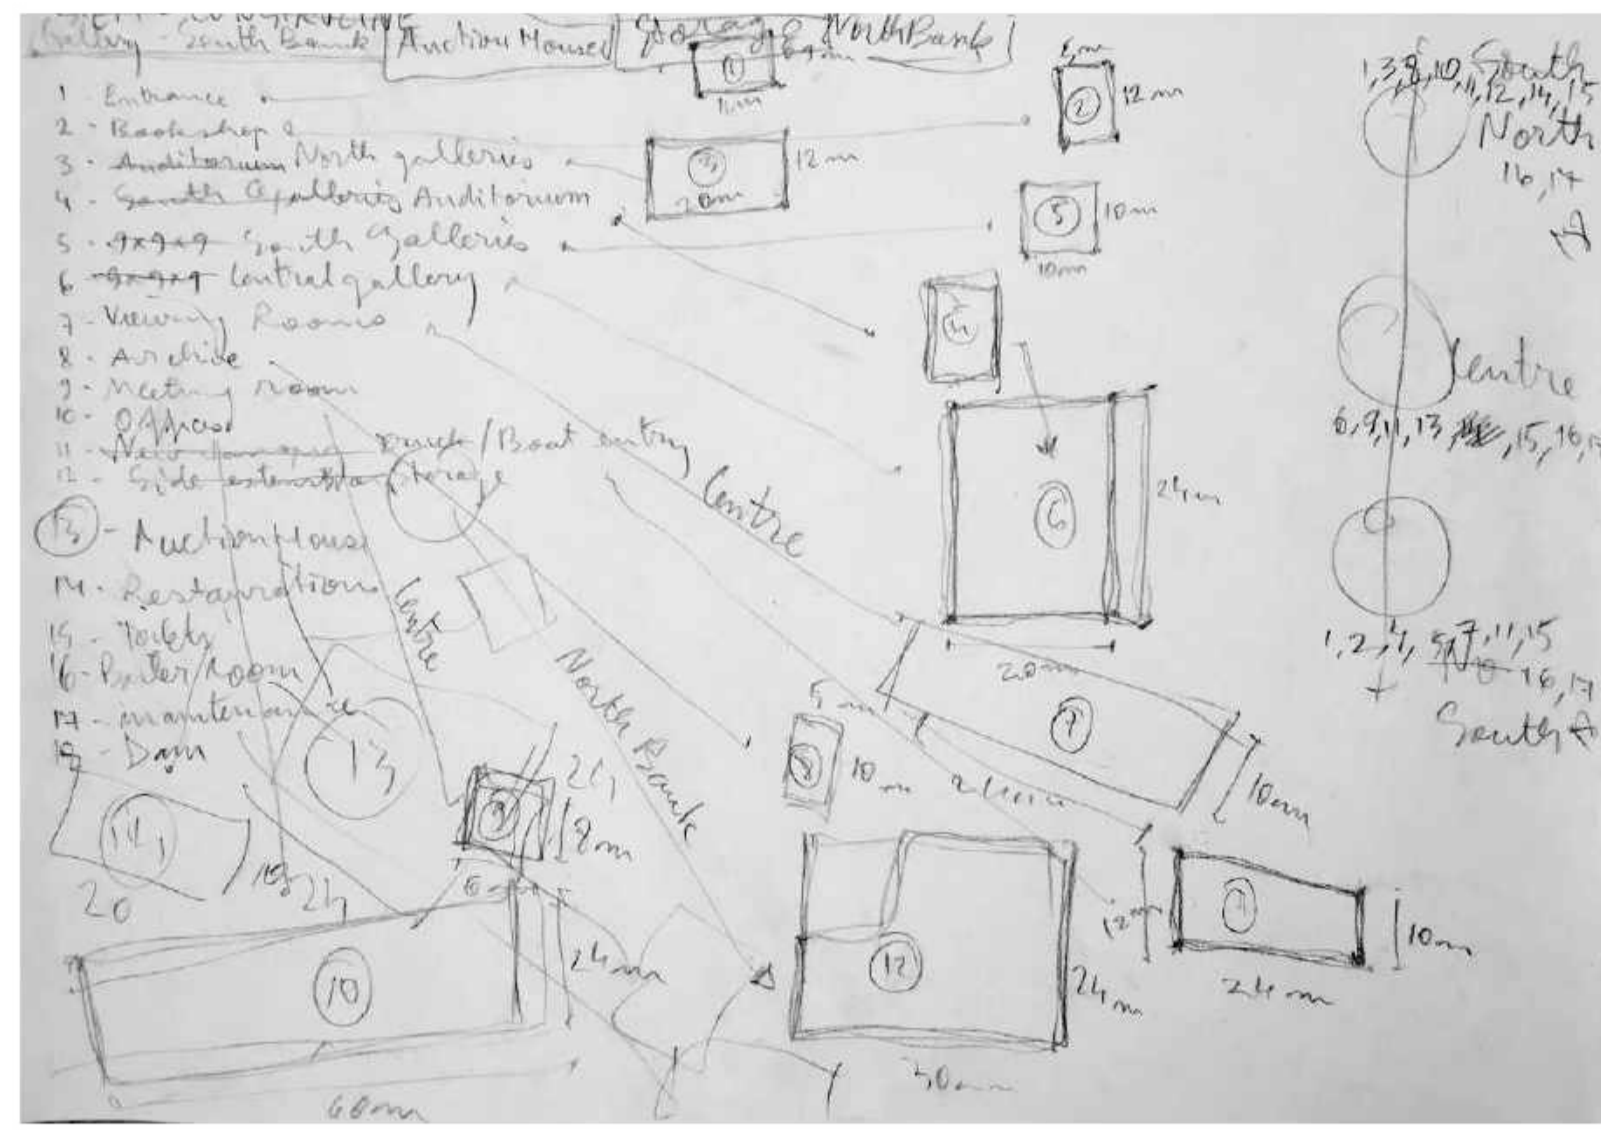 Gallery - South Bank
Auction House
Storage North Bank
1 - Entrance
2 - Bookshop
3 - Auditorium North galleries
4 - South Galleries Auditorium
5 - 9x9x9 South Galleries
6 - 9x9x9 Central gallery
7 - Viewing Rooms
8 - Archive
9 - Meeting room
10 - Offices
11 - New / Boat entry
12 - Side extension storage
13 - Auction House
14 - Restaurations
15 - Toilets
16 - Boiler Room
17 - maintenance
18 - Dam
1
2
12m
3
12m
20m
5
10m
10m
4
6
24m
20m
7
10m
24m
5m
8
10m
7
12m
10m
24m
12
24m
30m
9
8m
24
13
14
20
10
24m
60m
Centre
Centre
North Bank
South
1,3,8,10,11,12,14,15
North
16,17
Centre
6,9,11,13, 15,16,
1,2,4,5,7,11,15
16,17
South